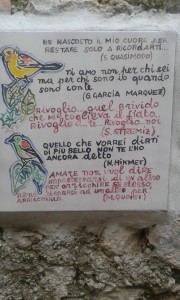 HO NASCOSTO IL MIO CUORE PER
RESTARE SOLO A RICORDARTI...
(S. QUASIMODO)
ti amo non per chi sei
ma per chi sono io quando
sono con te
(G. GARCIA MARQUEZ)
Rivoglio... quel brivido
che mi toglieva il fiato.
Rivoglio te. Rivoglio noi.
QUELLO CHE VORREI DIRTI
DI PIU BELLO NON TE L'HO
ANCORA detto
(N. HIKMET)
AMARE NON VUOL DIRE
di un altro
per arricchire se stesso,